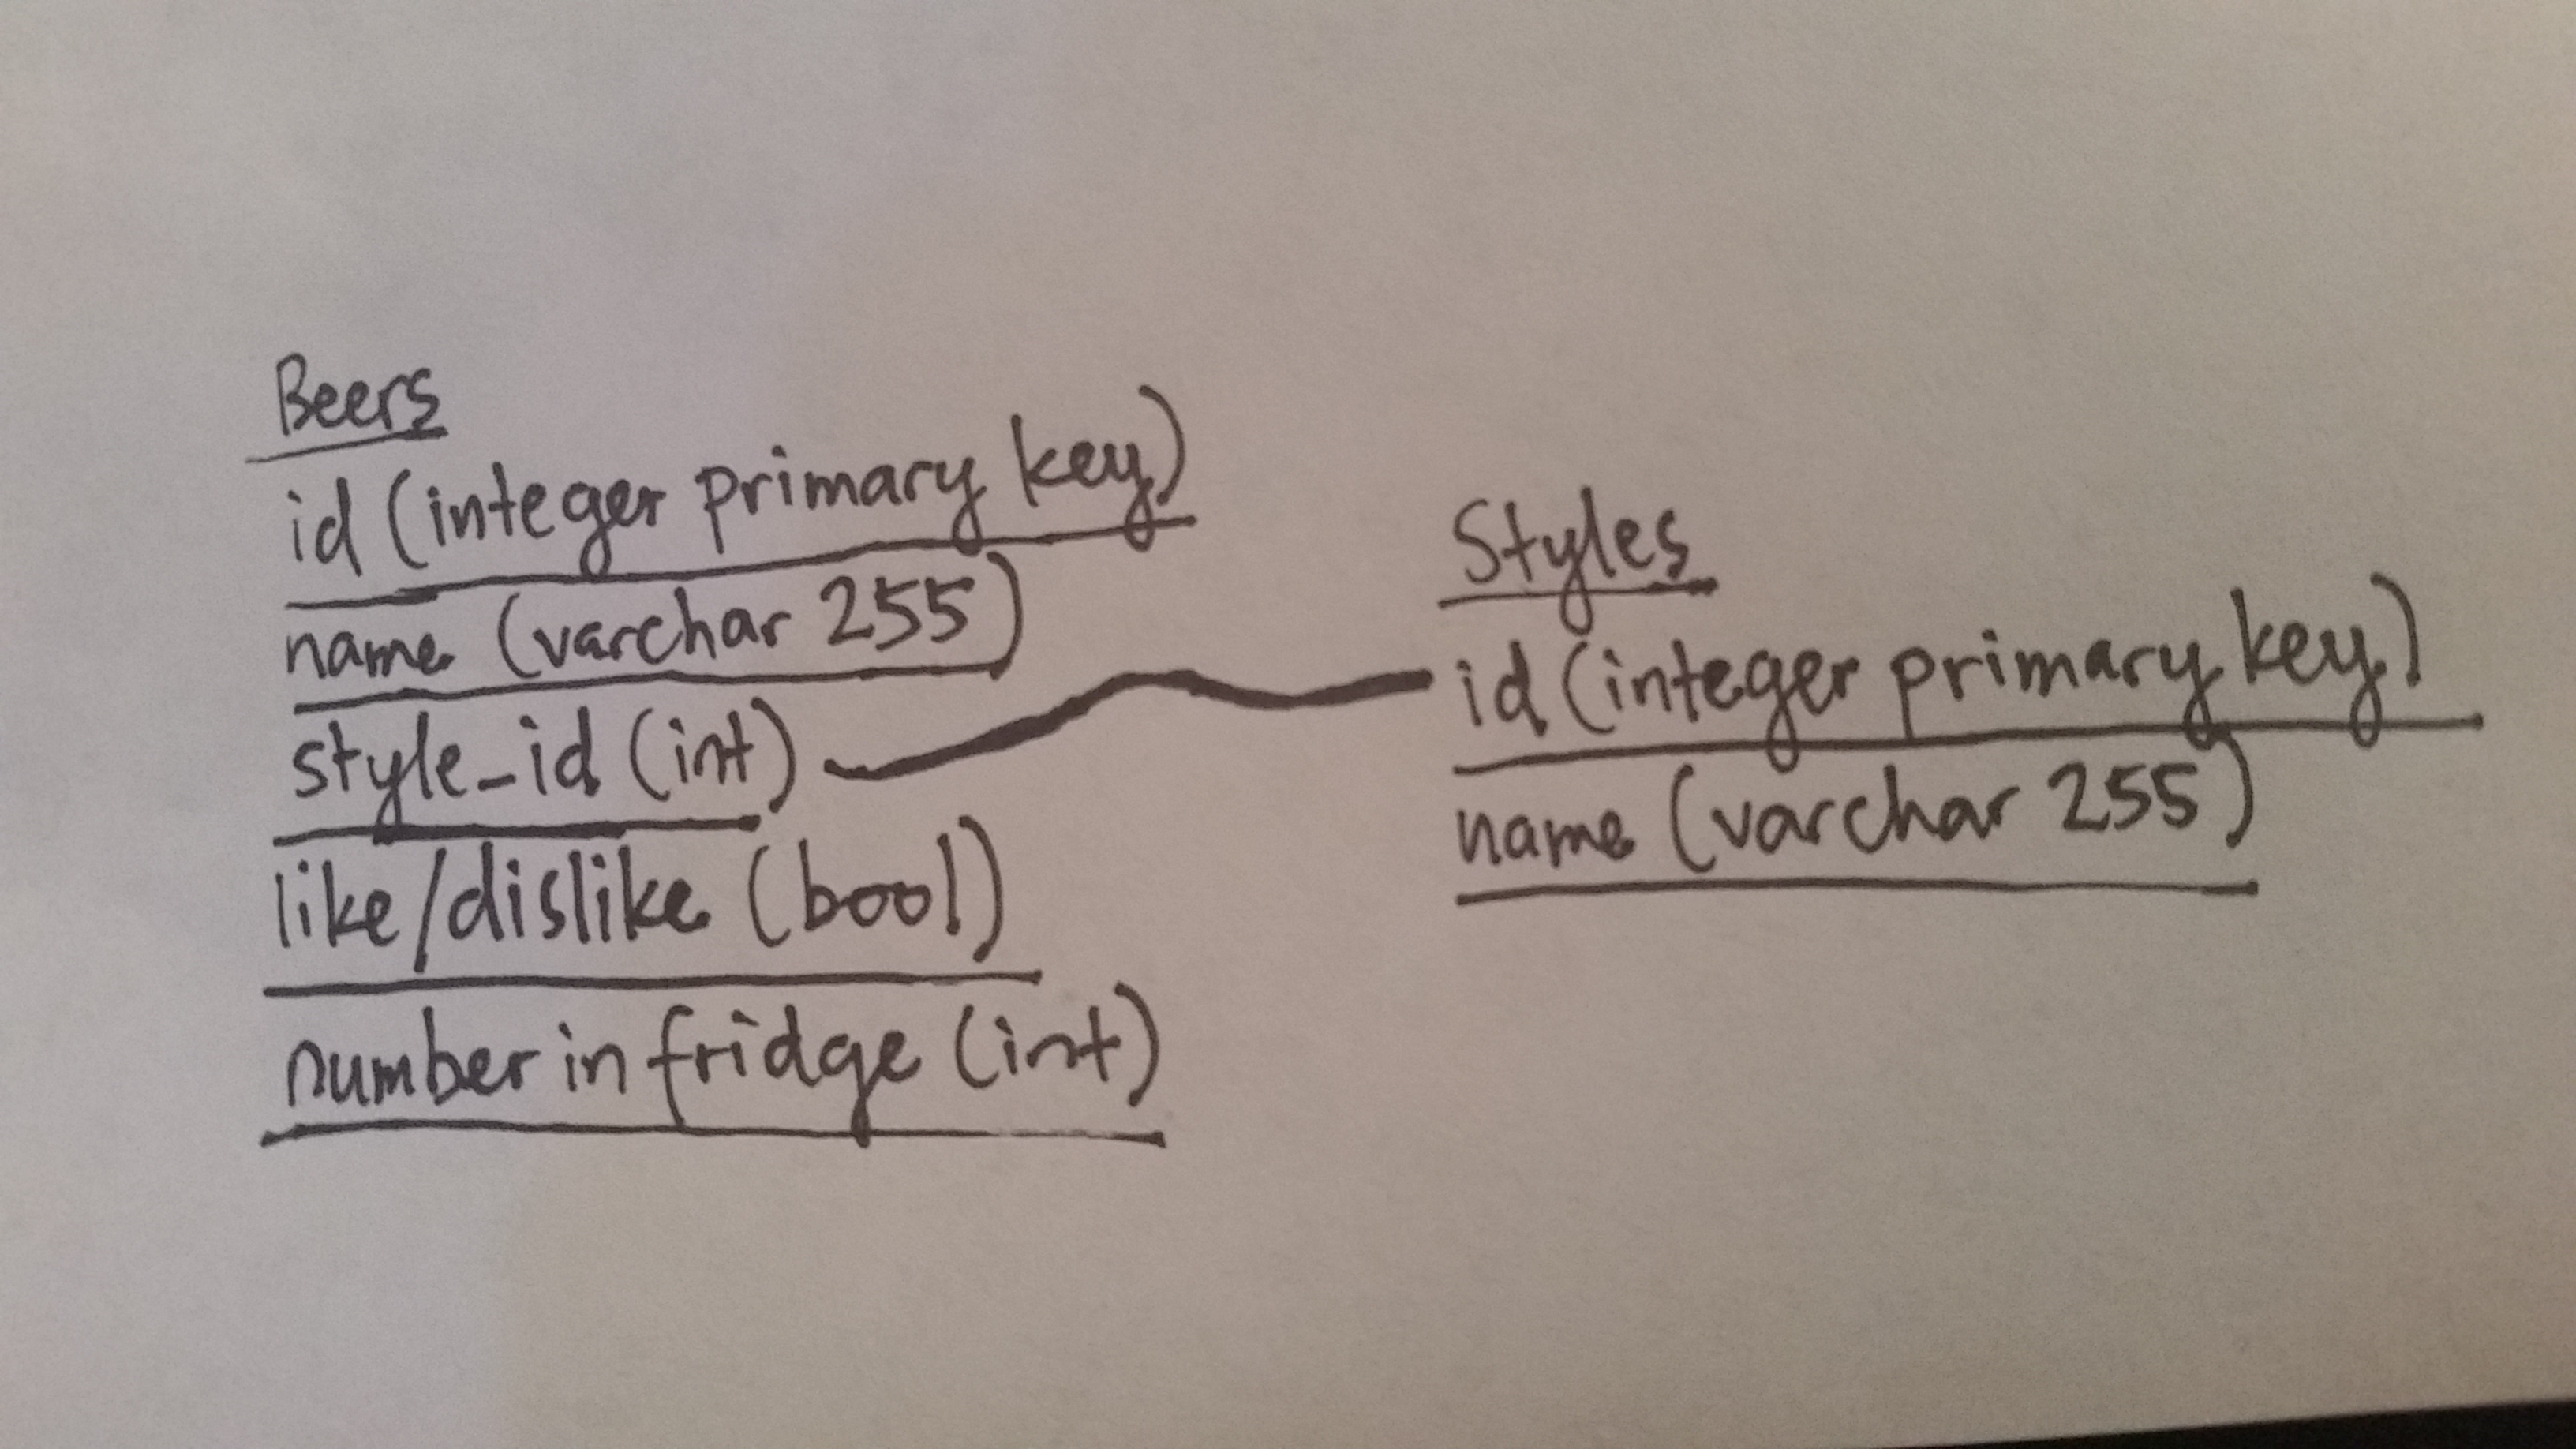 Beers
id (integer primary key)
name (varchar 255)
style_id (int)
like/dislike (bool)
number in fridge (int)
Styles
id (integer primary key)
name (varchar 255)